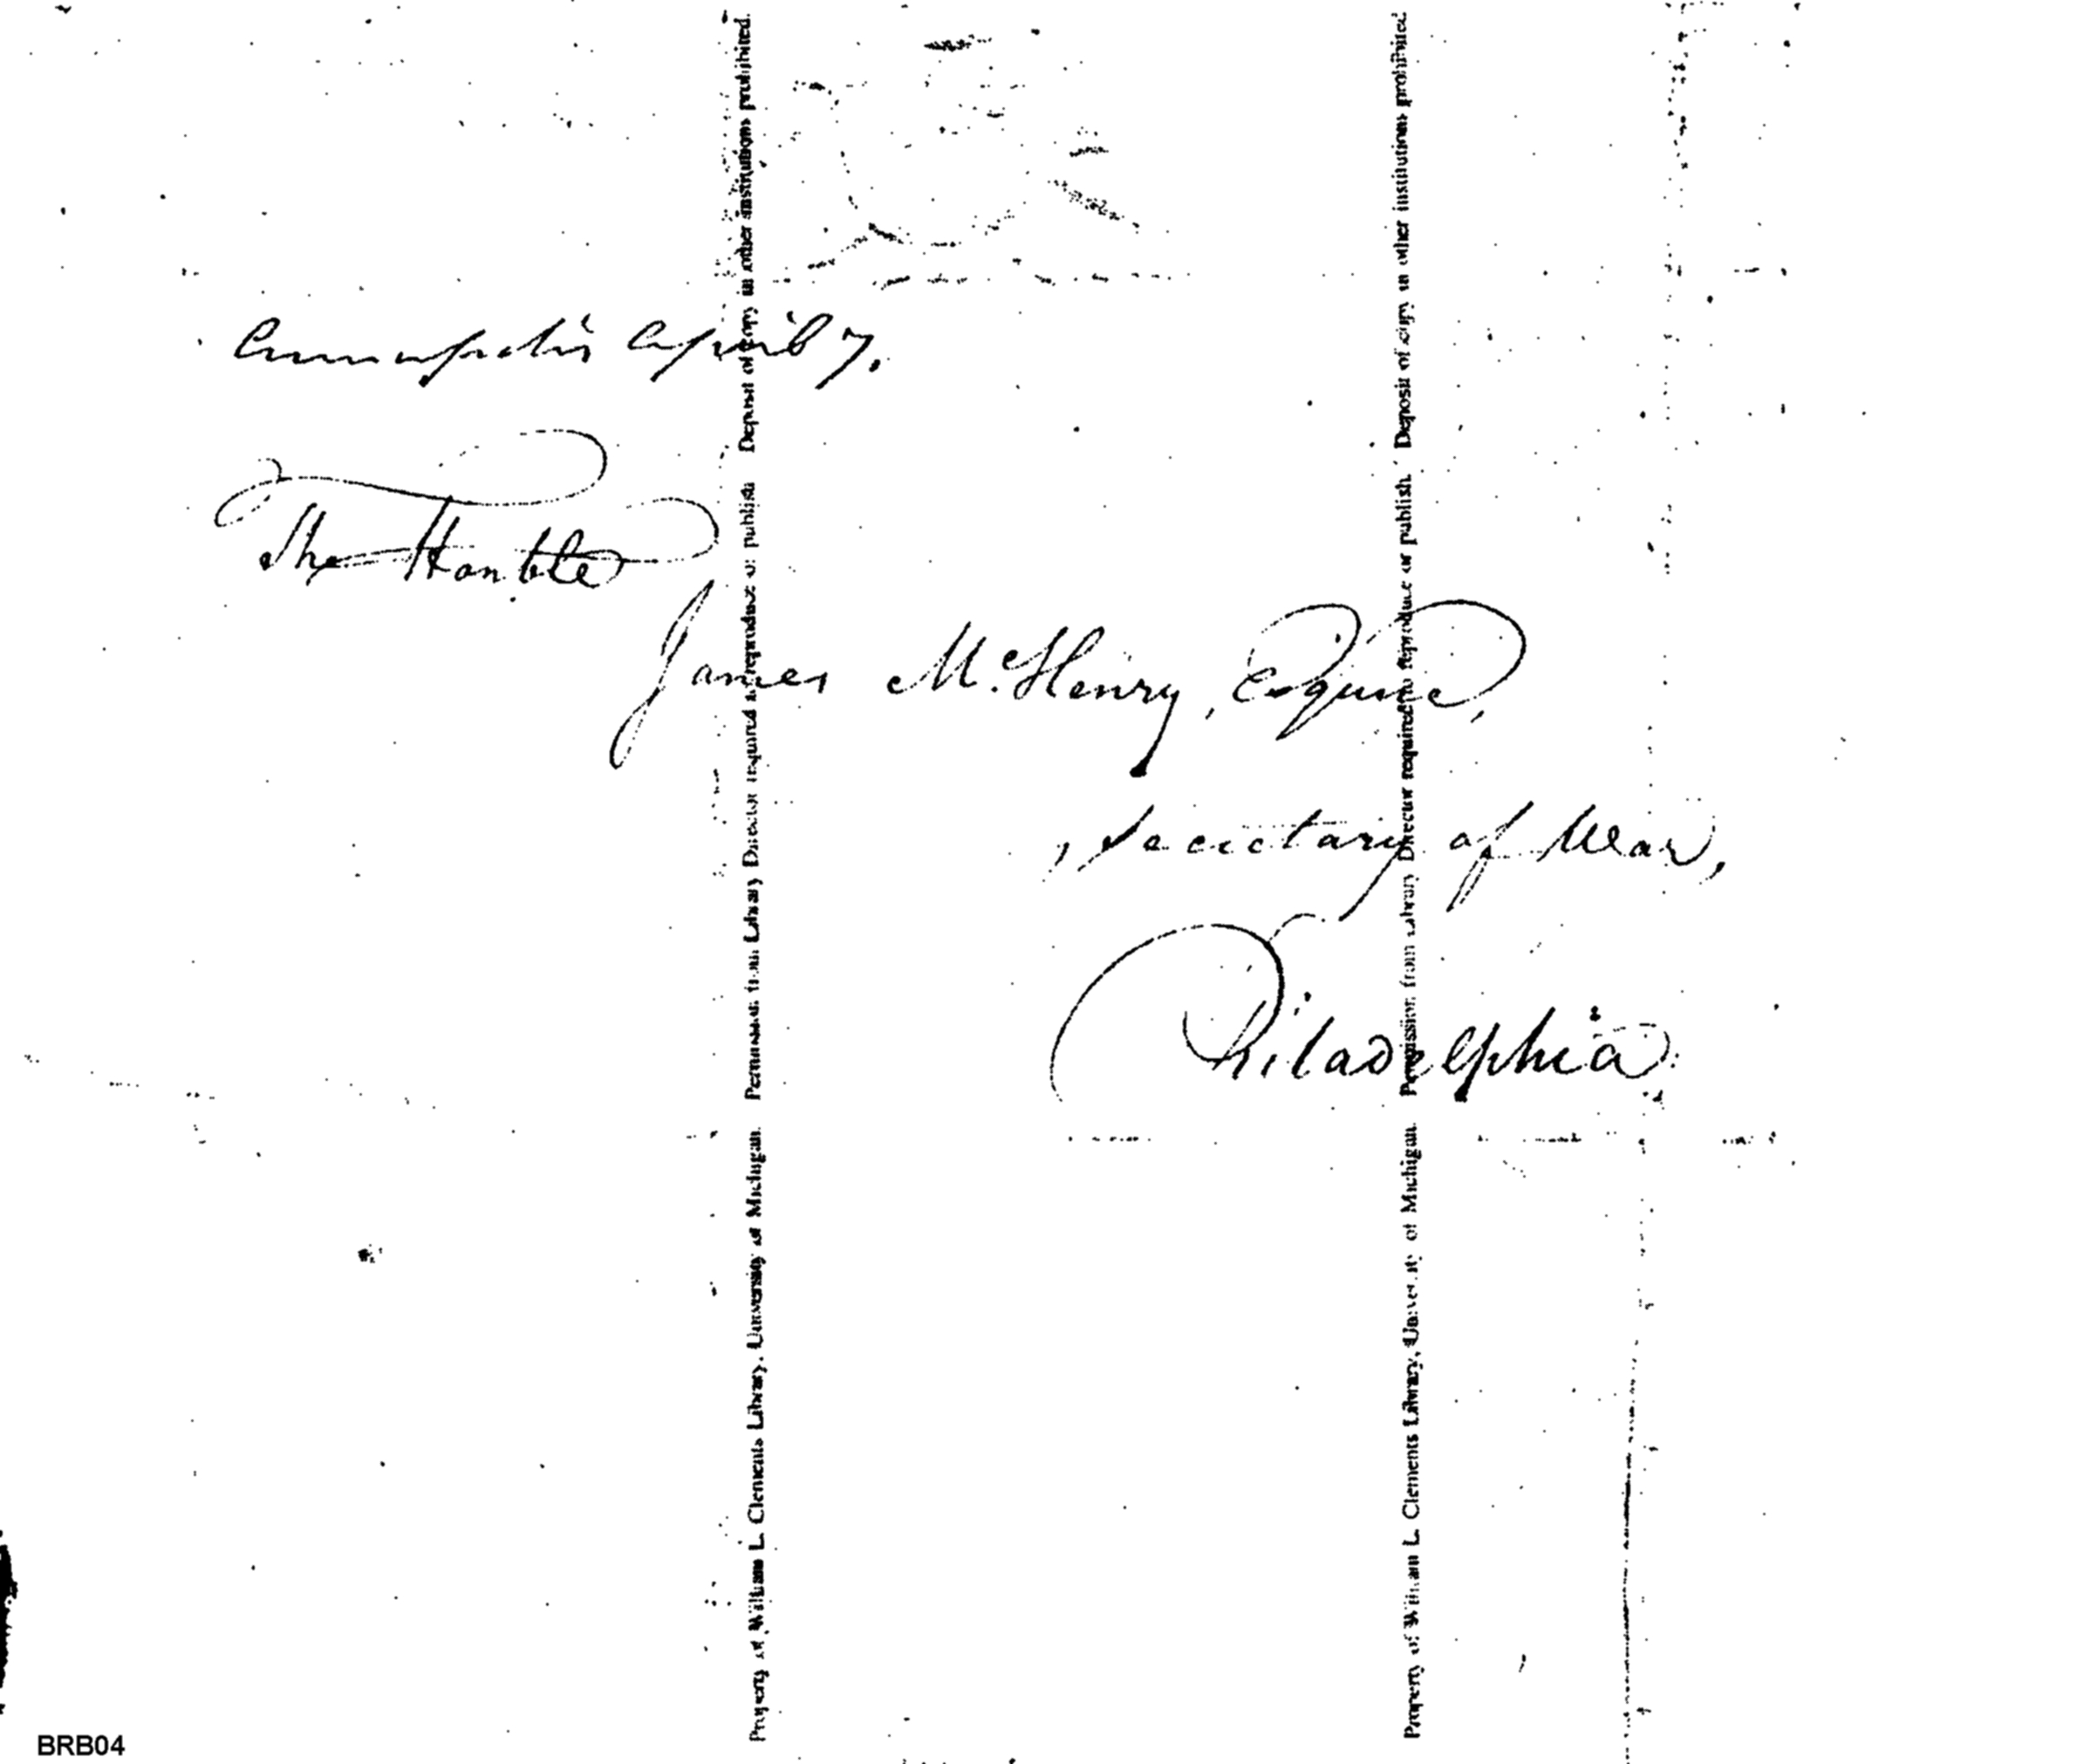 Annapolis April 7.
The Hon.ble
James McHenry, Esquire,
Secretary of War,
Philadelphia.
Property of William L. Clements Library, University of Michigan. Permission from Library Director required to reproduce or publish. Deposit of copy in other institutions prohibited.
Property of William L. Clements Library, University of Michigan. Permission from Library Director required to reproduce or publish. Deposit of copy in other institutions prohibited.
BRB04